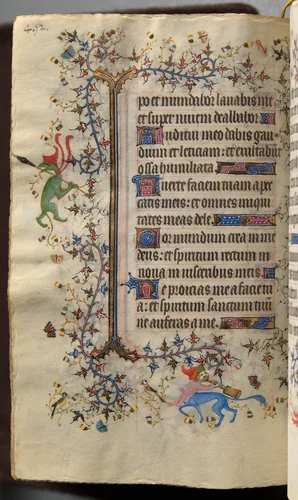 po et mundabor lauabis me
et super niuem dealbabor.
Auditui meo dabis gau
dium et leticiam: et exultabunt
ossa humiliata.
Auerte faciem tuam a pec
catis meis: et omnes iniqui
tates meas dele.
Cor mundum crea in me
deus: et spiritum rectum in
noua in uisceribus meis.
Ne proicias me a facie tu
a: et spiritum sanctum tuum
ne auferas a me.